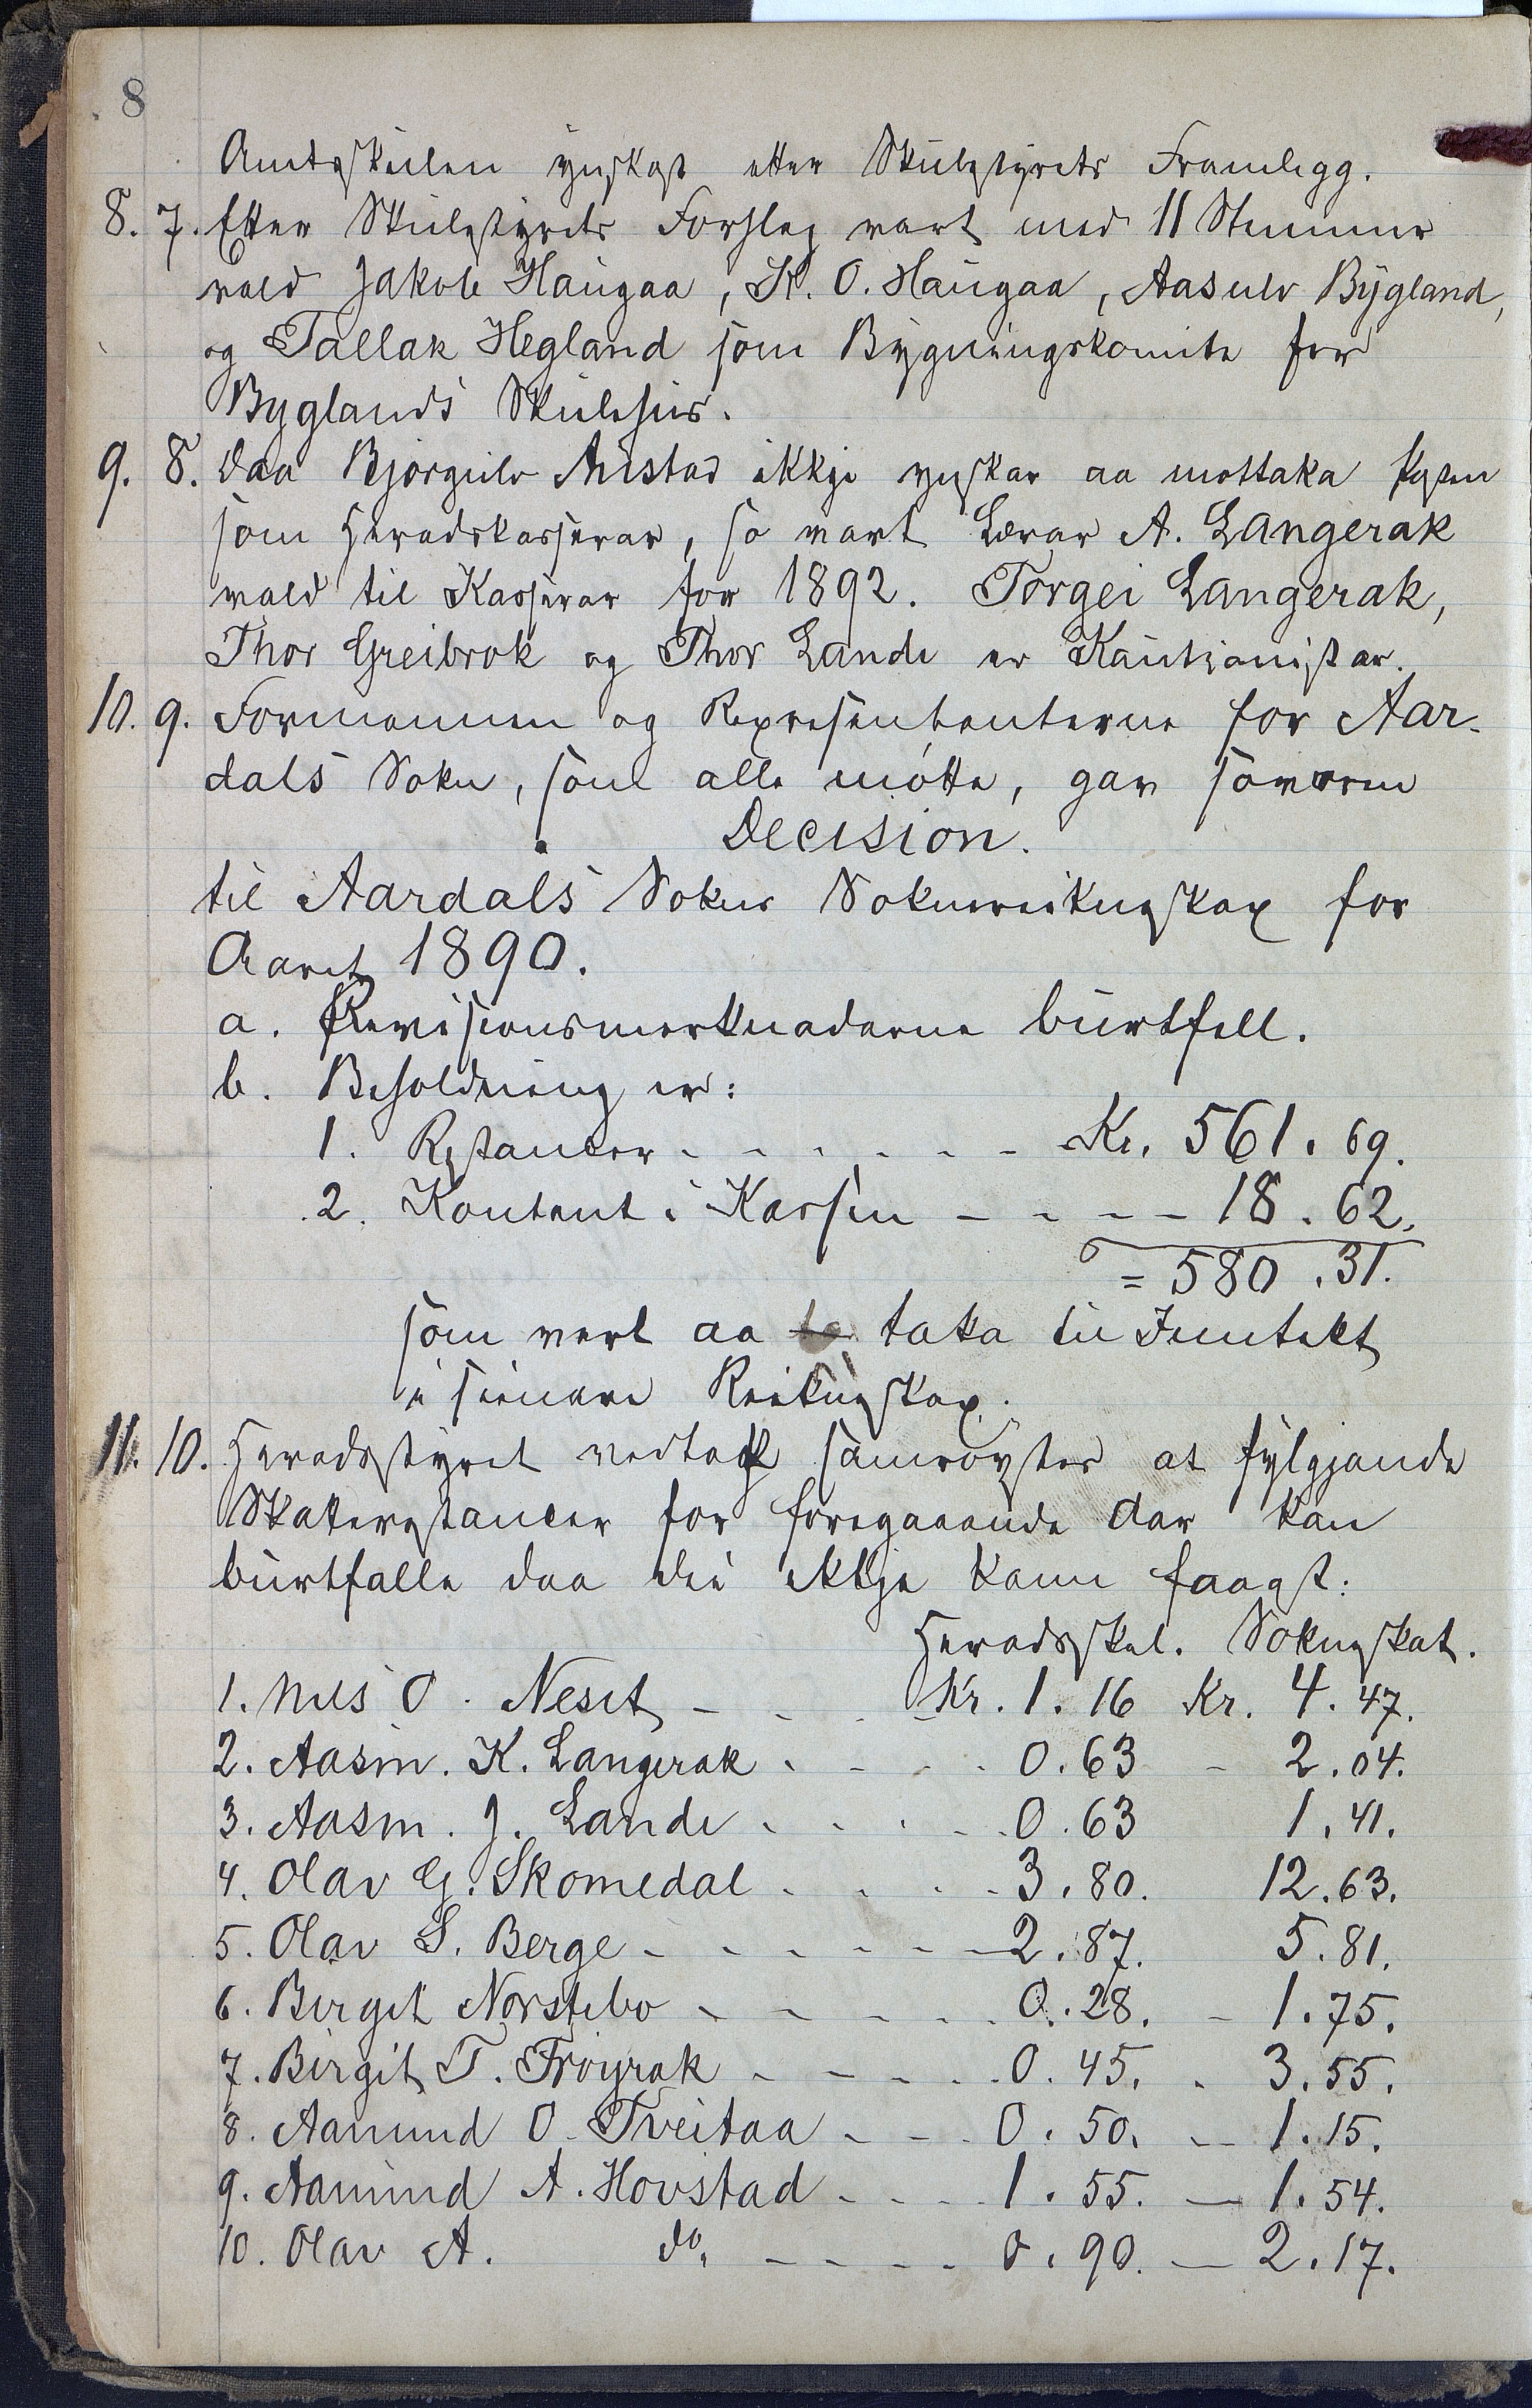 8
Amtsskulen ynskast etter Skulestyrets Framlegg.
8. 7. Etter Skulestyrets Forslag vart med 11 Stemmer
vald Jakob Haugaa, K. O. Haugaa, Aasulv Bygland,
og Tallak Hegland som Bygningskomite for
Byglands Skulehus.
9. 8. Daa Bjorgulv Austad ikkje ynskar aa mottaka Posten
som Heradskasserar, so vart Lærar A. Langerak
vald til Kasserar for 1892. Torgei Langerak,
Thor Greibrok og Thor Lande er Kautionistar.
10. 9. Formannen og Representanterne for Aar-
dals Sokn, som alle møtte, gav
Decision.
til Aardals Sokns Soknereikneskap for
Aaret 1890.
a. Revisionsmerknaderne burtfell.
b. Beholdning er:
1. Restancer - - - - - - Kr. 561.69.
2. Kontant i Kassen - - - - 18.62.
= 580.31.
som vert aa taka til Inntekt
i seinare Reikneskap.
11. 10. Heradsstyret vedtok samrøystes at fylgjande
Skaterestancer for foregaaande Aar kan
burtfalle daa dei ikkje kann faast:
Heradsskat. Sokneskat.
1. Nils O. Neset - - - Kr. 1.16 Kr. 4.47.
2. Aasm. K. Langerak - - - - 0.63 - 2.04.
3. Aasm. J. Lande - - - - - 0.63 1.41.
4. Olav G. Skomedal - - - - 3.80. 12.63.
5. Olav S. Berge - - - - - - 2.87. 5.81.
6. Birgit Norstebo - - - - - 0.28. - 1.75.
7. Birgit T. Frøyrak - - - - - 0.45. - 3.55.
8. Aanund O. Tveitaa - - - 0.50. - 1.15.
9. Aanund A. Hovstad - - - - 1.55. - 1.54.
10. Olav A. do. - - - - 0.90. - 2.17.